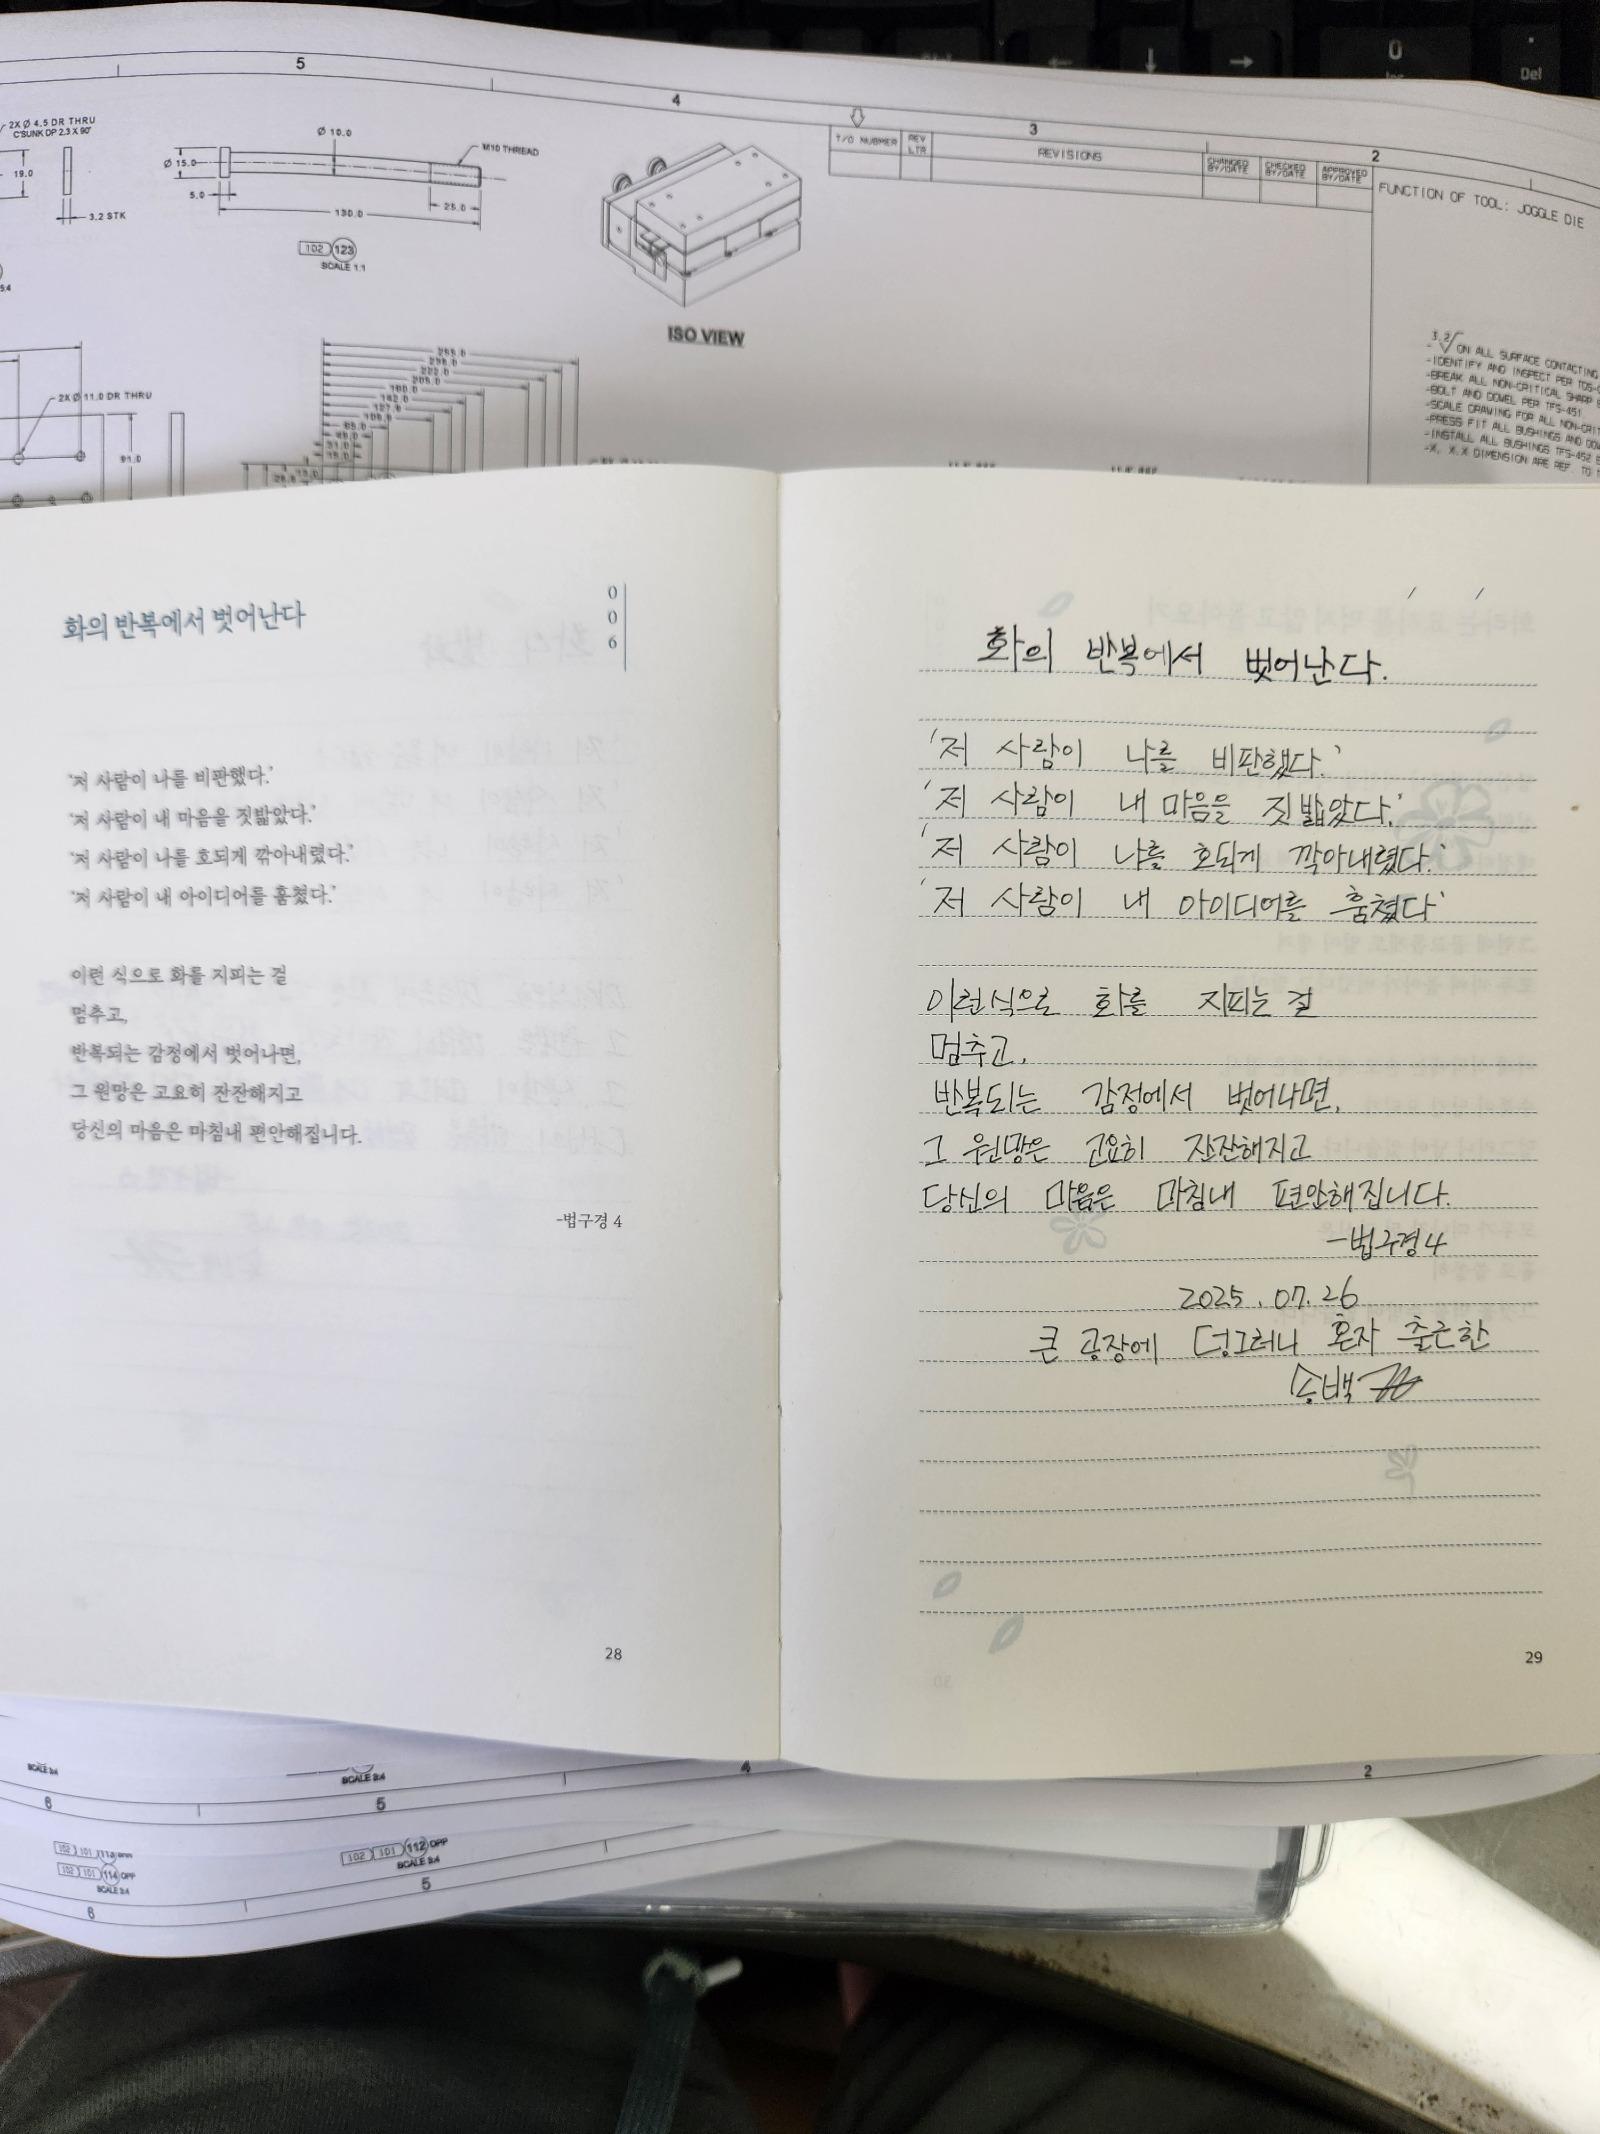 0
Del
5
4
3
2
2X Ø 4.5 DR THRU
C'SUNK DP 2.3 X 90°
19.0
3.2 STK
Ø 15.0
Ø 10.0
M10 THREAD
5.0
25.0
130.0
102 123
SCALE 1:1
ISO VIEW
T/O NUBMER
REV LTR
REVISIONS
CHANGED BY/DATE
CHECKED BY/DATE
APPROVED BY/DATE
FUNCTION OF TOOL: JOGGLE DIE
3.2
- ON ALL SURFACE CONTACTING
-IDENTIFY AND INSPECT PER TDS-
-BREAK ALL NON-CRITICAL SHARP
-BOLT AND DOWEL PER TFS-451.
-SCALE DRAWING FOR ALL NON-CRIT
-PRESS FIT ALL BUSHINGS AND DOW
-INSTALL ALL BUSHINGS TFS-452
-X, X.X DIMENSION ARE REF. TO
2X Ø 11.0 DR THRU
91.0
화의 반복에서 벗어난다
006
'저 사람이 나를 비판했다.'
'저 사람이 내 마음을 짓밟았다.'
'저 사람이 나를 호되게 깎아내렸다.'
'저 사람이 내 아이디어를 훔쳤다.'
이런 식으로 화를 지피는 걸
멈추고,
반복되는 감정에서 벗어나면,
그 원망은 고요히 잔잔해지고
당신의 마음은 마침내 편안해집니다.
-법구경 4
28
화의 반복에서 벗어난다.
'저 사람이 나를 비판했다.'
'저 사람이 내 마음을 짓밟았다.'
'저 사람이 나를 호되게 깍아내렸다.'
'저 사람이 내 아이디어를 훔쳤다'
이런식으로 화를 지피는 걸
멈추고,
반복되는 감정에서 벗어나면,
그 원망은 고요히 잔잔해지고
당신의 마음은 마침내 편안해집니다.
-법구경 4
2025. 07. 26
큰 공장에 덩그러니 혼자 출근한
송백
29
SCALE 3:4
SCALE 3:4
4
2
6
5
102 101 112 OPP
SCALE 3:4
102 101 114 OPP
SCALE 3:4
6
5